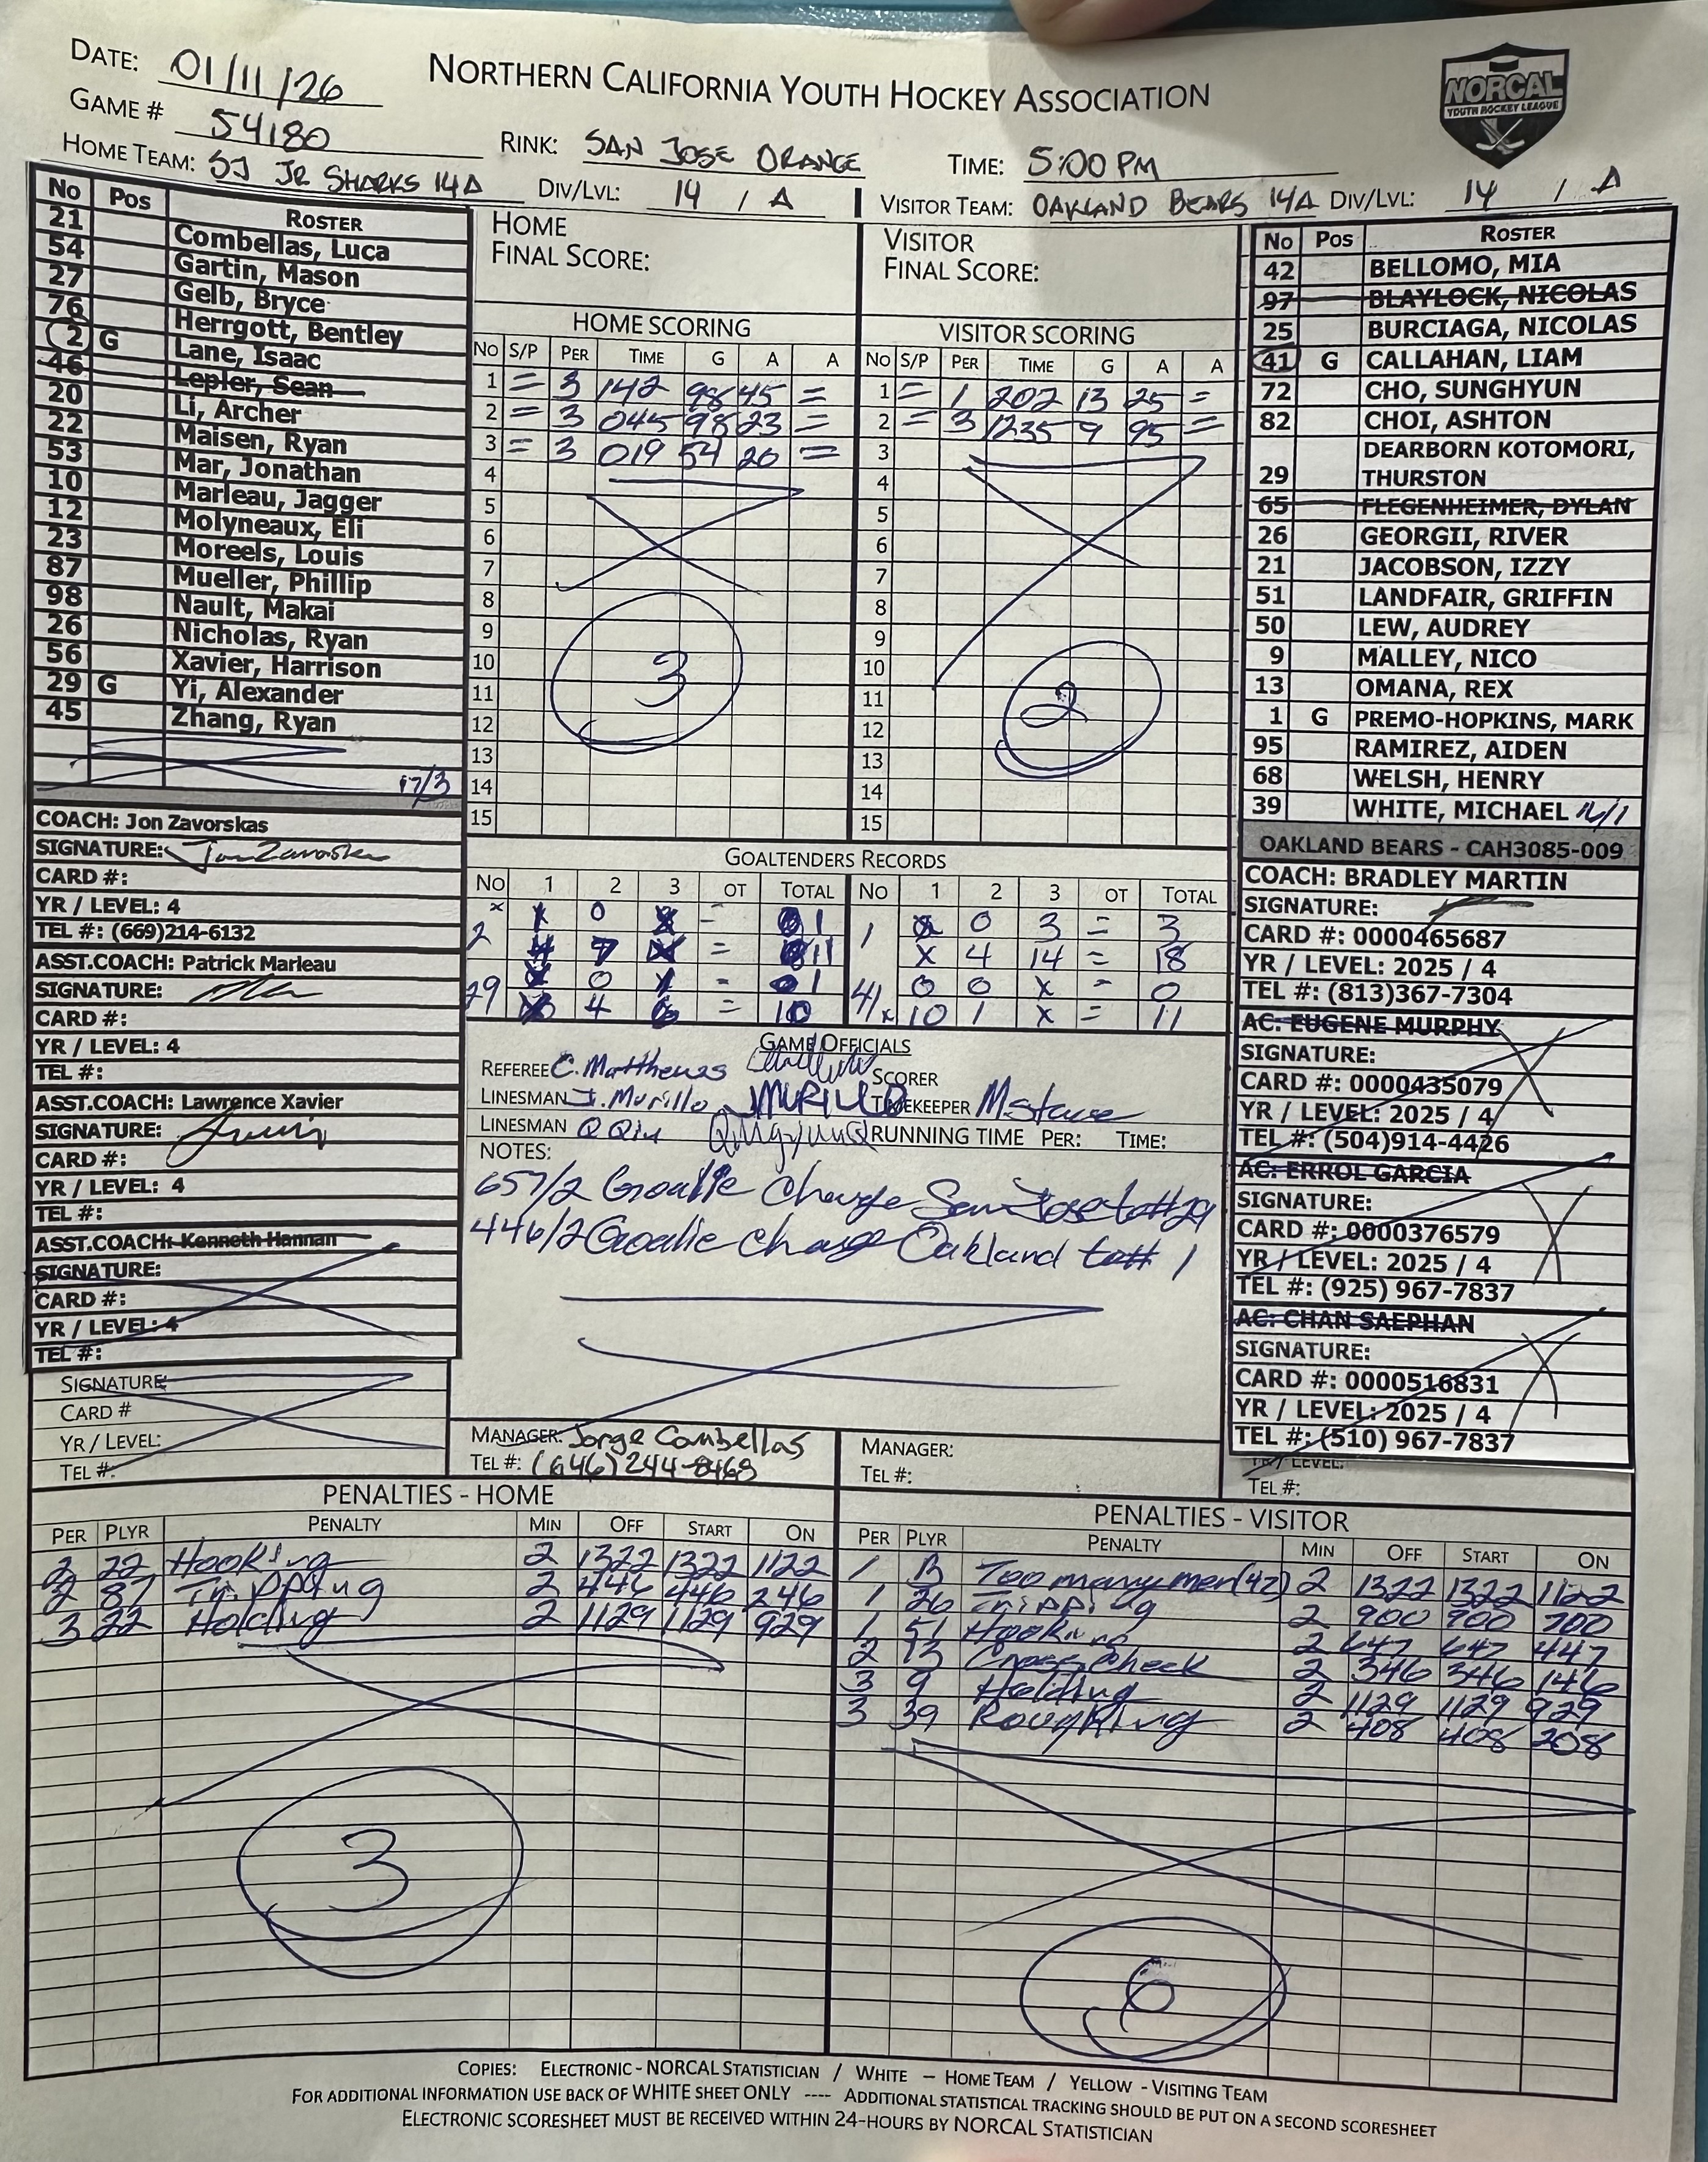 DATE: 01/11/26
NORTHERN CALIFORNIA YOUTH HOCKEY ASSOCIATION
NORCAL
YOUTH HOCKEY LEAGUE
GAME # 54180
RINK: SAN JOSE ORANGE TIME: 5:00 PM
HOME TEAM: SJ JR SHARKS 14A DIV/LVL: 14 / A
VISITOR TEAM: OAKLAND BEARS 14A DIV/LVL: 14 / A
No Pos ROSTER
21 Combellas, Luca
54 Gartin, Mason
27 Gelb, Bryce
76 Herrgott, Bentley
2 G Lane, Isaac
46 Lepler, Sean
20 Li, Archer
22 Maisen, Ryan
53 Mar, Jonathan
10 Marleau, Jagger
12 Molyneaux, Eli
23 Moreels, Louis
87 Mueller, Phillip
98 Nault, Makai
26 Nicholas, Ryan
56 Xavier, Harrison
29 G Yi, Alexander
45 Zhang, Ryan
17/3
COACH: Jon Zavorskas
SIGNATURE:
CARD #:
YR / LEVEL: 4
TEL #: (669)214-6132
ASST.COACH: Patrick Marleau
SIGNATURE:
CARD #:
YR / LEVEL: 4
TEL #:
ASST.COACH: Lawrence Xavier
SIGNATURE:
CARD #:
YR / LEVEL: 4
TEL #:
ASST.COACH: Kenneth Hannan
SIGNATURE:
CARD #:
YR / LEVEL: 4
TEL #:
SIGNATURE:
CARD #
YR / LEVEL:
TEL #:
HOME
FINAL SCORE:
VISITOR
FINAL SCORE:
HOME SCORING
No S/P PER TIME G A A
1 = 3 142 98 45 =
2 = 3 045 98 23 =
3 = 3 019 54 20 =
4
5
6
7
8
9
10
11
12
13
14
15
3
VISITOR SCORING
No S/P PER TIME G A A
1 = 1 202 13 25 =
2 = 3 1235 9 95 =
3
4
5
6
7
8
9
10
11
12
13
14
15
2
GOALTENDERS RECORDS
No 1 2 3 OT TOTAL No 1 2 3 OT TOTAL
2 0 - 1
7 = 11
29 0 - 1
4 = 10
1 x 0 3 = 3
X 4 14 = 18
41 0 0 x - 0
x 10 1 x = 11
GAME OFFICIALS
REFEREE C. Matthews
SCORER
LINESMAN J. Murillo J MURILLO TIMEKEEPER
LINESMAN Q Qiu RUNNING TIME PER: TIME:
NOTES:
657/2 Goalie Change San Jose to #29
446/2 Goalie change Oakland to # 1
MANAGER: Jorge Combellas
TEL #: (646) 244-8468
MANAGER:
TEL #:
No Pos ROSTER
42 BELLOMO, MIA
97 BLAYLOCK, NICOLAS
25 BURCIAGA, NICOLAS
41 G CALLAHAN, LIAM
72 CHO, SUNGHYUN
82 CHOI, ASHTON
29 DEARBORN KOTOMORI,
THURSTON
65 FLEGENHEIMER, DYLAN
26 GEORGII, RIVER
21 JACOBSON, IZZY
51 LANDFAIR, GRIFFIN
50 LEW, AUDREY
9 MALLEY, NICO
13 OMANA, REX
1 G PREMO-HOPKINS, MARK
95 RAMIREZ, AIDEN
68 WELSH, HENRY
39 WHITE, MICHAEL
OAKLAND BEARS - CAH3085-009
COACH: BRADLEY MARTIN
SIGNATURE:
CARD #: 0000465687
YR / LEVEL: 2025 / 4
TEL #: (813)367-7304
AC: EUGENE MURPHY
SIGNATURE:
CARD #: 0000435079
YR / LEVEL: 2025 / 4
TEL #: (504)914-4426
AC: ERROL GARCIA
SIGNATURE:
CARD #: 0000376579
YR / LEVEL: 2025 / 4
TEL #: (925) 967-7837
AC: CHAN SAEPHAN
SIGNATURE:
CARD #: 0000516831
YR / LEVEL: 2025 / 4
TEL #: (510) 967-7837
YR / LEVEL:
TEL #:
PENALTIES - HOME
PER PLYR PENALTY MIN OFF START ON
2 22 Hooking 2 1322 1322 1122
2 87 Tripping 2 446 446 246
3 22 Holding 2 1129 1129 929
3
PENALTIES - VISITOR
PER PLYR PENALTY MIN OFF START ON
1 B Too many men (42) 2 1322 1322 1122
1 26 Tripping 2 900 900 700
1 51 Hooking 2 647 647 447
2 13 Cross Check 2 346 346 146
3 9 Holding 2 1129 1129 929
3 39 Roughing 2 408 408 208
6
COPIES: ELECTRONIC - NORCAL STATISTICIAN / WHITE – HOME TEAM / YELLOW - VISITING TEAM
FOR ADDITIONAL INFORMATION USE BACK OF WHITE SHEET ONLY ---- ADDITIONAL STATISTICAL TRACKING SHOULD BE PUT ON A SECOND SCORESHEET
ELECTRONIC SCORESHEET MUST BE RECEIVED WITHIN 24-HOURS BY NORCAL STATISTICIAN